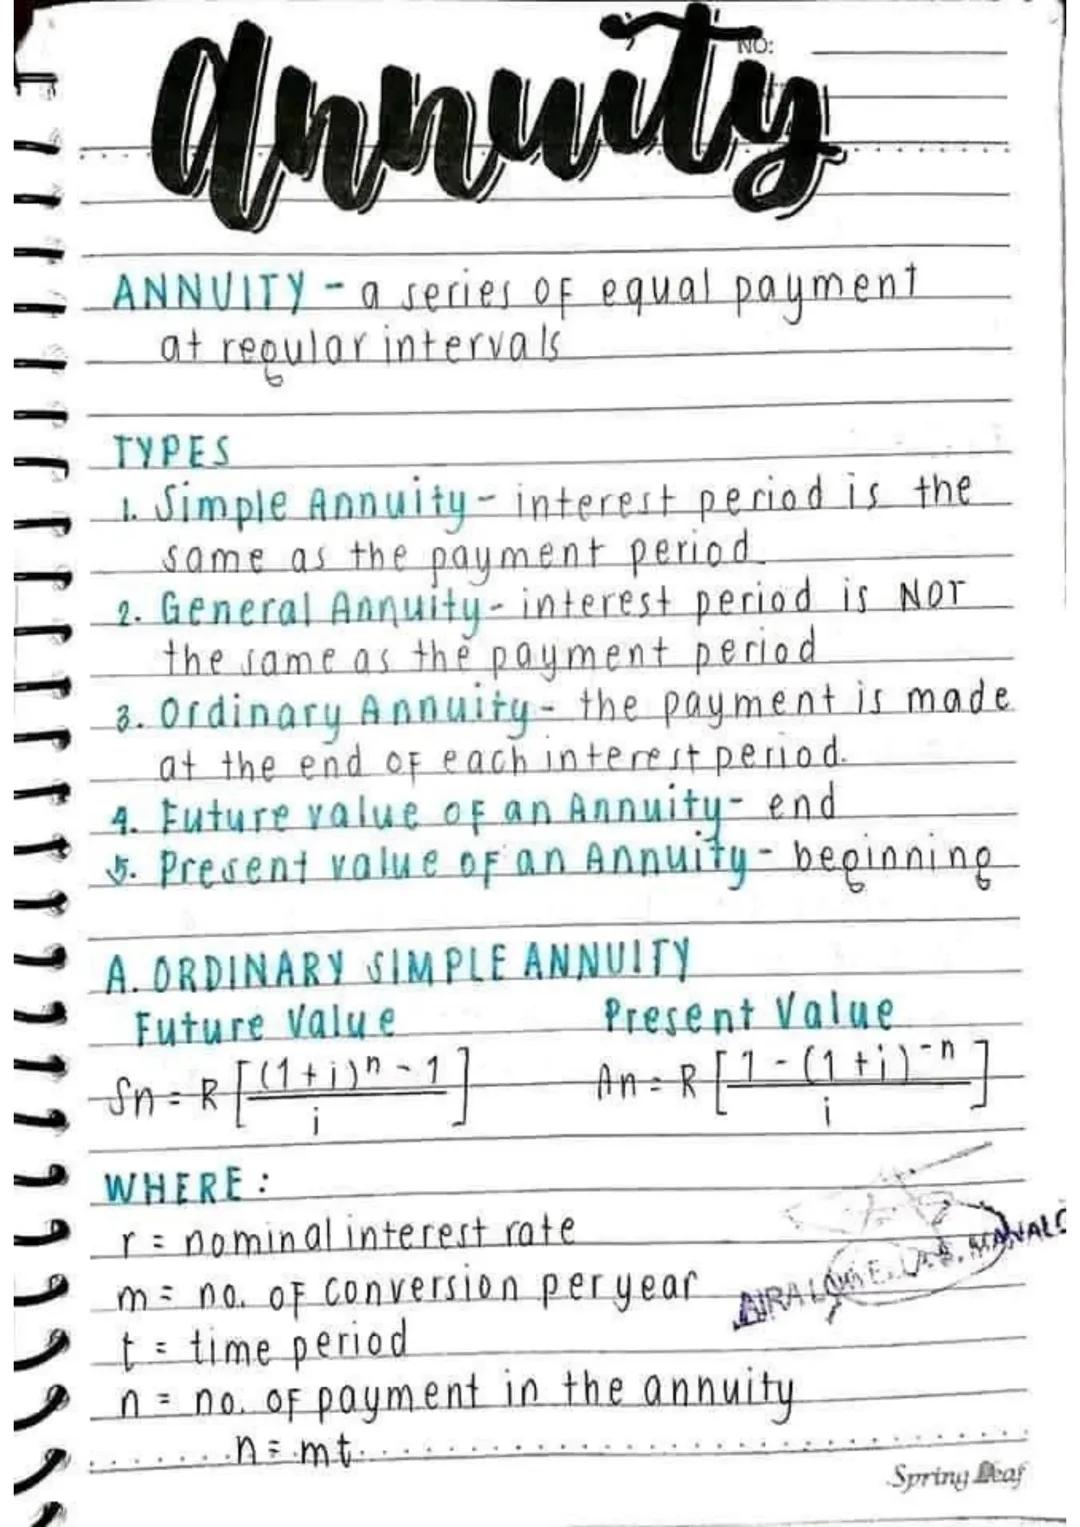 Annuity
NO:
ANNUITY - a series of equal payment
at regular intervals
TYPES
1. Simple Annuity - interest period is the
same as the payment period
2. General Annuity - interest period is NOT
the same as the payment period
3. Ordinary Annuity - the payment is made
at the end of each interest period.
4. Future value of an Annuity - end
5. Present value of an Annuity - beginning
A. ORDINARY SIMPLE ANNUITY
Future Value Present Value
Sn = R [(1+i)^n - 1 / i] An = R [1 - (1+i)^-n / i]
WHERE:
r = nominal interest rate
m = no. of conversion per year
t = time period
n = no. of payment in the annuity
n = mt
Spring Leaf